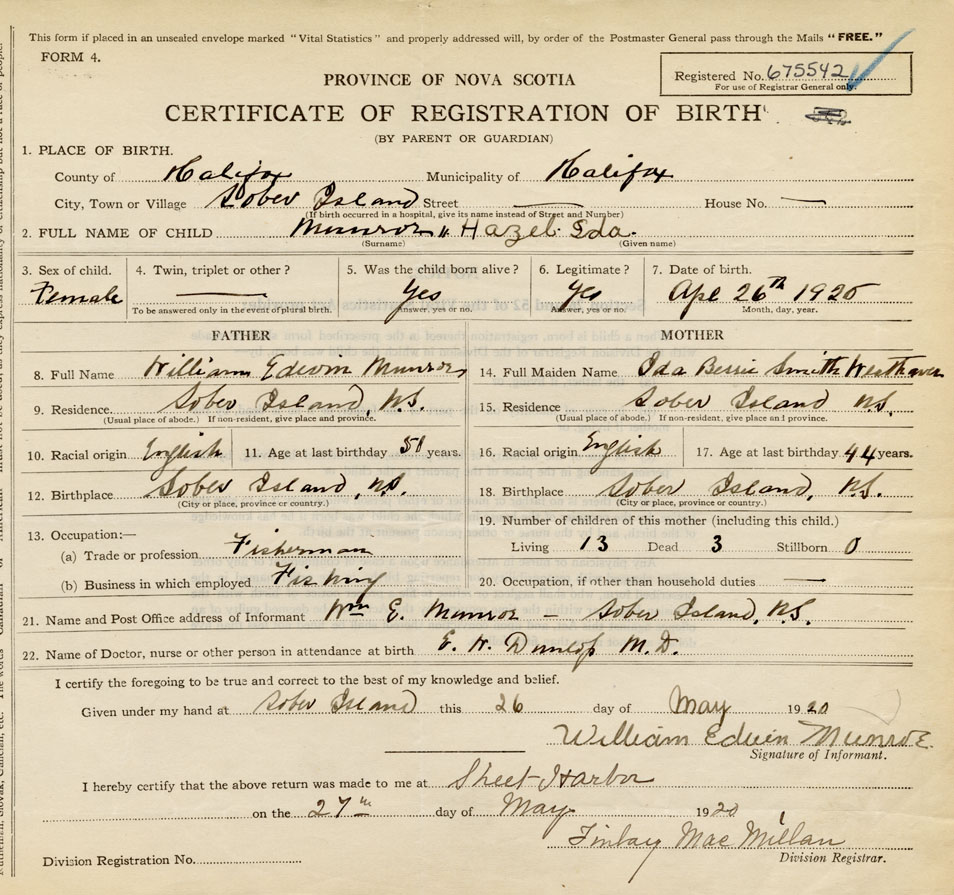 This form if placed in an unsealed envelope marked "Vital Statistics" and properly addressed will, by order of the Postmaster General pass through the Mails "FREE."
FORM 4.
PROVINCE OF NOVA SCOTIA
Registered No. 675542
For use of Registrar General only.
CERTIFICATE OF REGISTRATION OF BIRTH
(BY PARENT OR GUARDIAN)
1. PLACE OF BIRTH.
County of Halifax Municipality of Halifax
City, Town or Village Sober Island Street — House No. —
(If birth occurred in a hospital, give its name instead of Street and Number)
2. FULL NAME OF CHILD Munroe " Hazel Ida.
(Surname) (Given name)
3. Sex of child. 4. Twin, triplet or other? 5. Was the child born alive? 6. Legitimate? 7. Date of birth.
Female — Yes Yes Apr 26th 1920
To be answered only in the event of plural birth. Answer, yes or no. Answer, yes or no. Month, day, year.
FATHER MOTHER
8. Full Name William Edwin Munroe 14. Full Maiden Name Ida Bessie Smith Westhaver
9. Residence Sober Island, N.S. 15. Residence Sober Island N.S.
(Usual place of abode.) If non-resident, give place and province. (Usual place of abode.) If non-resident, give place and province.
10. Racial origin English 11. Age at last birthday 51 years. 16. Racial origin English 17. Age at last birthday 44 years.
12. Birthplace Sober Island, N.S. 18. Birthplace Sober Island, N.S.
(City or place, province or country.) (City or place, province or country.)
13. Occupation:— 19. Number of children of this mother (including this child.)
(a) Trade or profession Fisherman Living 13 Dead 3 Stillborn 0
(b) Business in which employed Fishing 20. Occupation, if other than household duties —
21. Name and Post Office address of Informant Wm E. Munroe – Sober Island, N.S.
22. Name of Doctor, nurse or other person in attendance at birth E. H. Dunlop M.D.
I certify the foregoing to be true and correct to the best of my knowledge and belief.
Given under my hand at Sober Island this 26 day of May 1920
William Edwin Munroe.
Signature of Informant.
I hereby certify that the above return was made to me at Sheet Harbor
on the 27th day of May 1920
Finlay Mac Millan
Division Registrar.
Division Registration No.